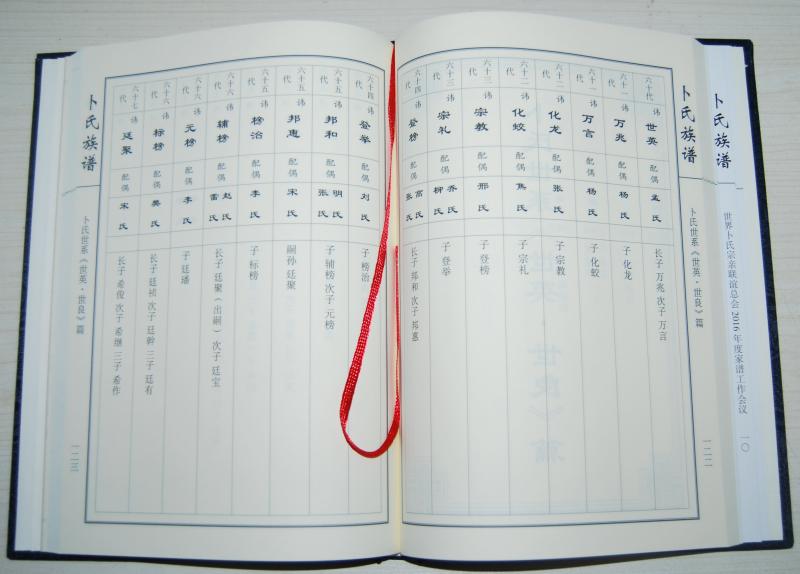 卜氏族谱
世界卜氏宗亲联谊总会2016年度家谱工作会议 一〇
卜氏族谱
卜氏世系《世英·世良》篇
一二二
六十代 讳 世英 配偶 孟氏 长子 万兆 次子 万言
六十一代 讳 万兆 配偶 杨氏 子 化龙
六十一代 讳 万言 配偶 杨氏 子 化蛟
六十二代 讳 化龙 配偶 张氏 子 宗教
六十二代 讳 化蛟 配偶 焦氏 子 宗礼
六十三代 讳 宗教 配偶 邢氏 子 登榜
六十三代 讳 宗礼 配偶 乔氏 柳氏 子 登举
六十四代 讳 登榜 配偶 高氏 张氏 长子 邦和 次子 邦惠
六十四代 讳 登举 配偶 刘氏 子 榜治
六十五代 讳 邦和 配偶 明氏 张氏 子 辅榜 次子 元榜
六十五代 讳 邦惠 配偶 宋氏 嗣孙 廷聚
六十五代 讳 榜治 配偶 李氏 子 标榜
六十六代 讳 辅榜 配偶 赵氏 雷氏 长子 廷聚（出嗣） 次子 廷宝
六十六代 讳 元榜 配偶 李氏 子 廷璠
六十六代 讳 标榜 配偶 樊氏 长子 廷祯 次子 廷幹 三子 廷有
六十七代 讳 廷聚 配偶 宋氏 长子 希俊 次子 希继 三子 希作
卜氏族谱
卜氏世系《世英·世良》篇
一二三